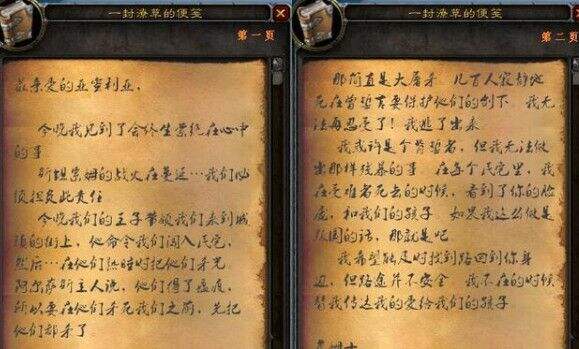 一封潦草的便笺
第一页
最亲爱的亚蜜利亚，
今晚我见到了会终生萦绕在心中
的事
斯坦索姆的战火在蔓延…我们必
须担负此责任
今晚我们的王子带领我们来到城
镇的街上，他命令我们闯入民宅，
然后…在他们熟睡时把他们杀光
阿尔萨斯主人说，他们得了瘟疫，
所以要在他们杀死我们之前，先把
他们都杀了
一封潦草的便笺
第二页
那简直是大屠杀 几百人寂静地
死在曾誓言要保护他们的剑下 我无
法再忍受了！我逃了出来
我或许是个背誓者，但我无法做
出那样残暴的事 在每个民宅里，我
在受难者死去的时候，看到了你的脸
庞，和我们的孩子 如果我这么做是
叛国的话，那就是吧
我希望能及时找到路回到你身
边，但路途并不安全 我不在的时候
替我传达我的爱给我们的孩子